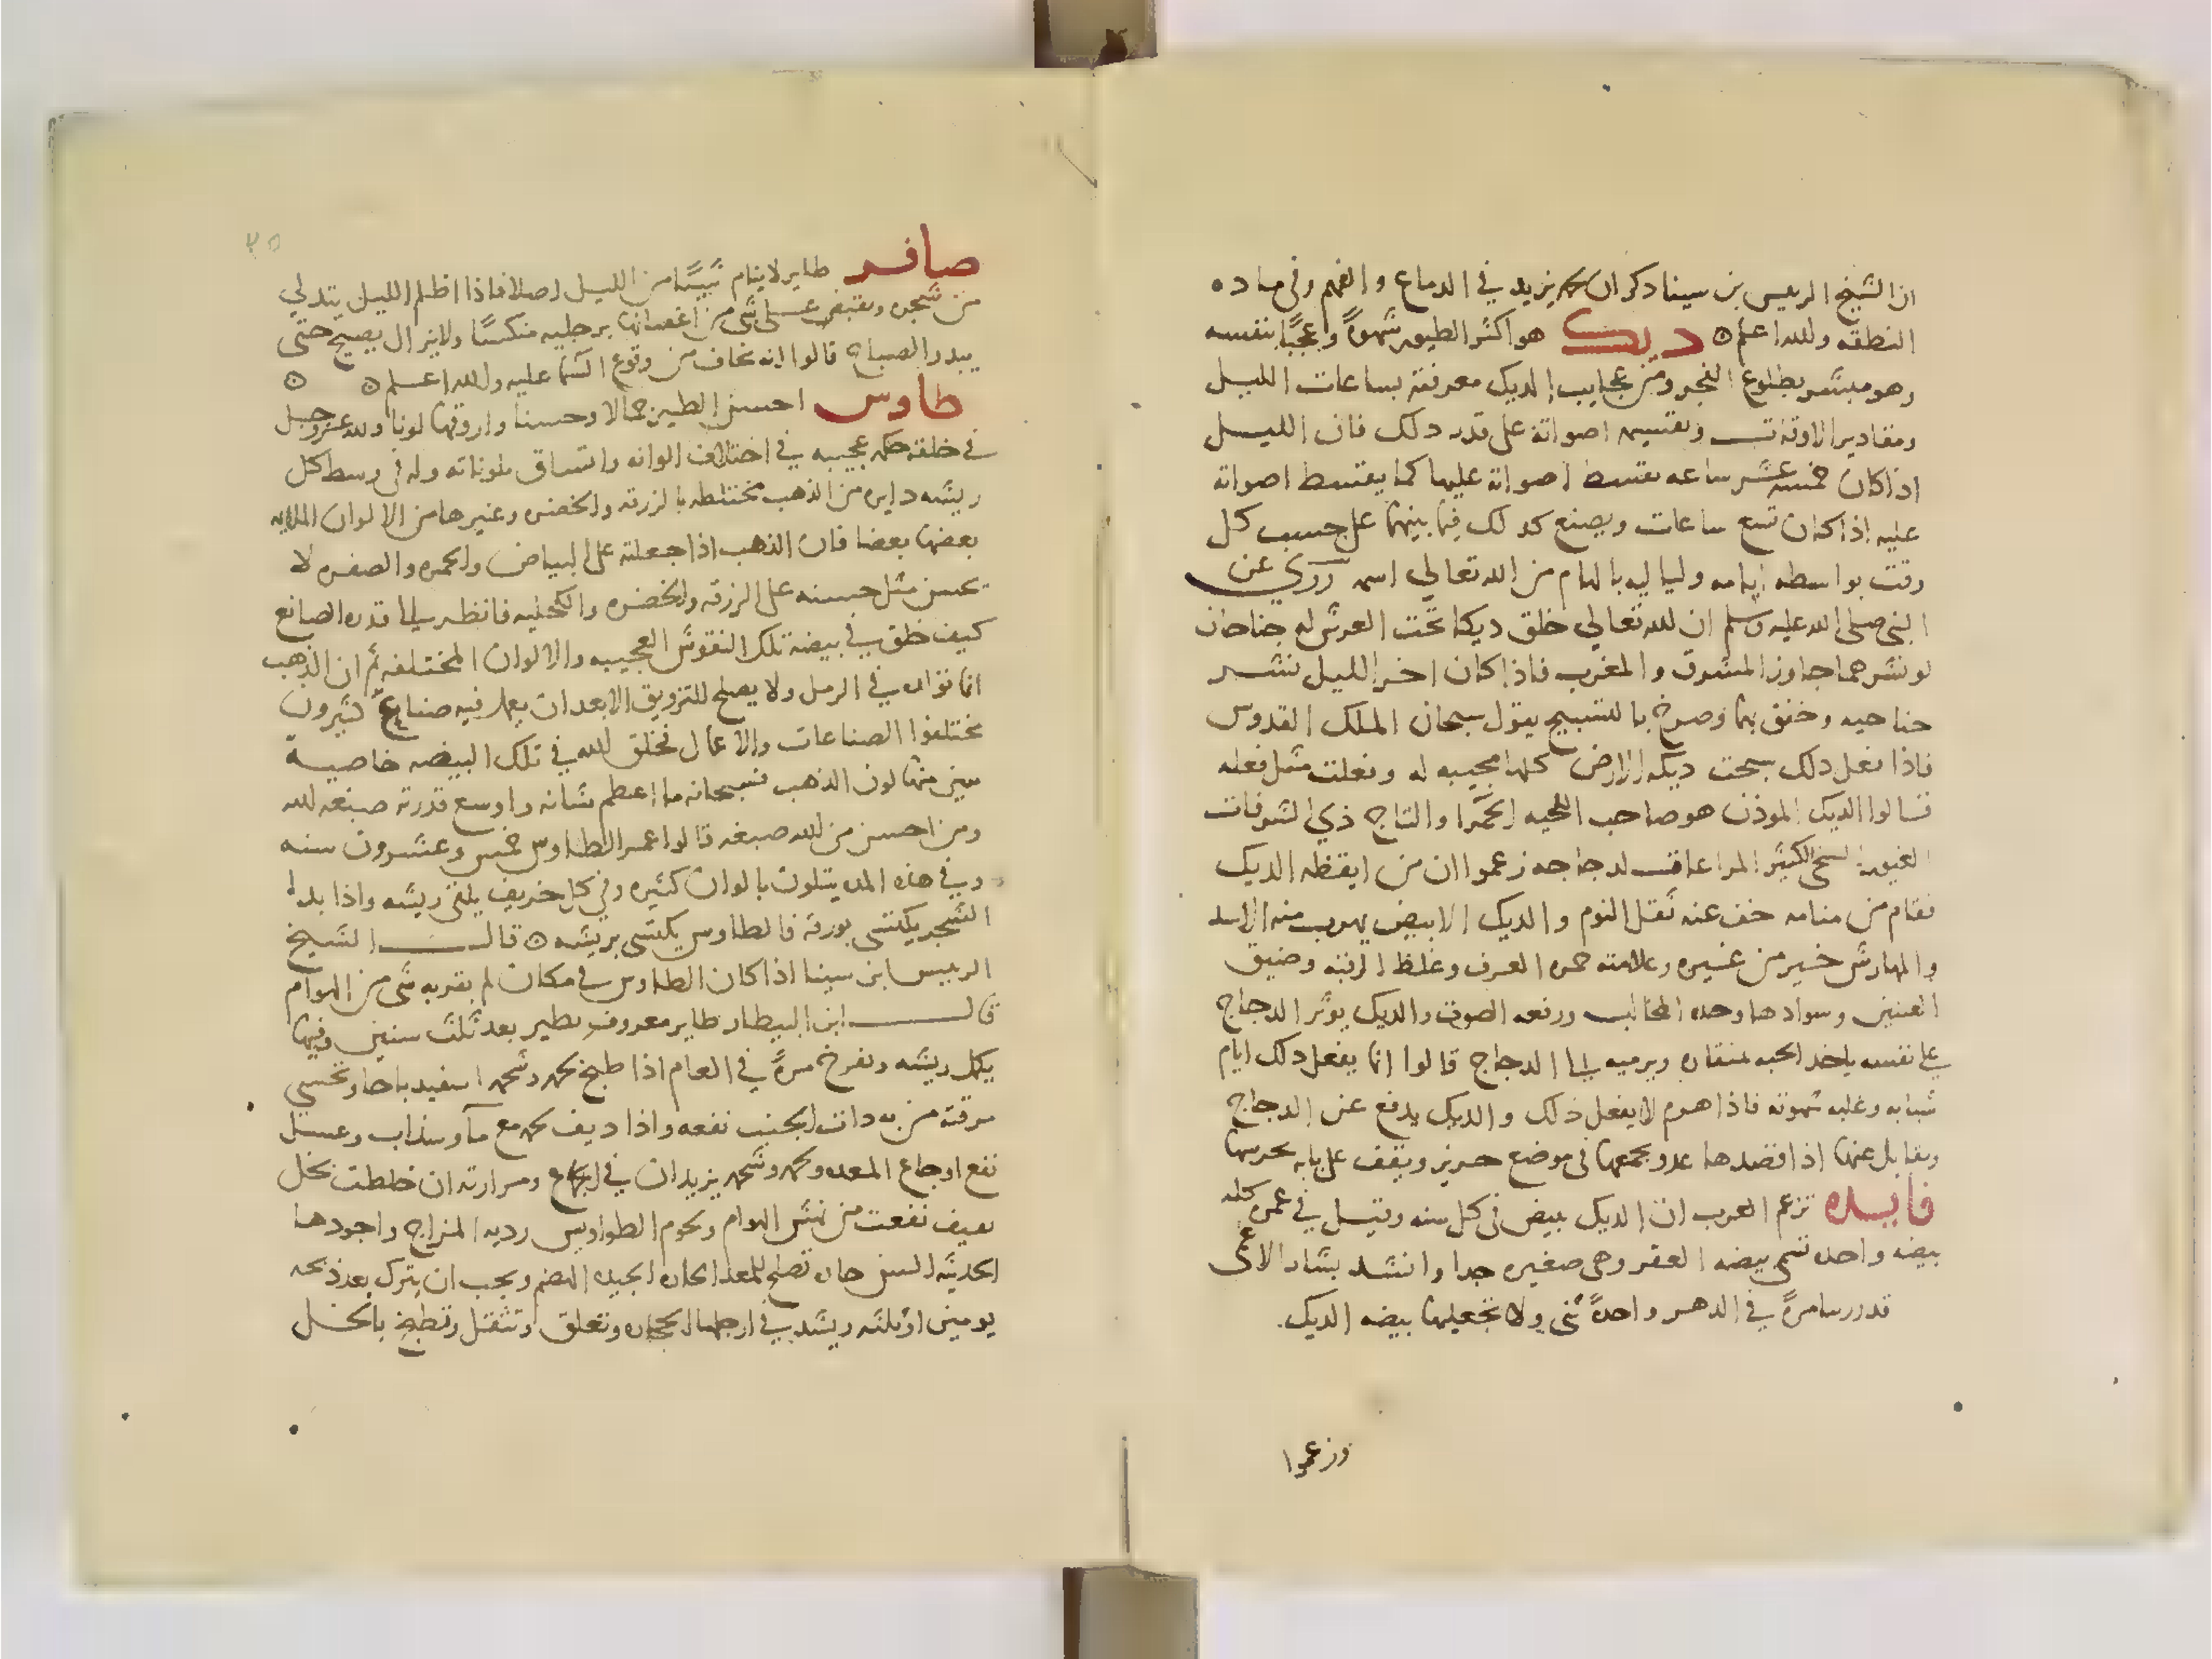 ان الشيخ الريس بن سينا دكر ان لحمه يزيد في الدماع والفهم وفي ماده
النطقه ولله اعلم ۞ ديك هو اكثر الطيور شهوةً وعجبًا بنفسه
وهو مبشر بطلوع الفجر ومن عجايب الديك معرفته بساعات الليل
ومقادير الاوقات وتقسيم اصواته على قدر دلك فان الليل
اذا كان خمسه عشر ساعه يقسط اصواته عليها كما يقسط اصواته
عليه اذا كان تسع ساعات ويصنع كدلك فيما بينهما على حسب كل
وقت بواسطه ايامه ولياليه بالهام من الله تعالي اسمه روي عن
النبي صلى الله عليه وسلم ان لله تعالي خلق ديكا تحت العرش له جناحان
لو نشرهما جاوز المشرق والمغرب فاذا كان اخر الليل نشر
جناحيه وخفق بهما وصرخ بالتسبيح يقول سبحان الملك القدوس
فاذا فعل دلك سبحت ديكه الارض كلها مجيبه له وفعلت مثل فعله
قالوا الديك الموذن هو صاحب اللحيه الحمرا والتاج ذي الشرفات
الغيور السخي الكثير المراعاه لدجاجه زعموا ان من ايقظه الديك
فقام من منامه خف عنه ثقل النوم والديك الابيض يهرب منه الاسد
والمهارش خير من غيره وعلامته حمره العرف وغلظ الرقبه وضيق
العينين وسوادها وحده المخالب ورفعه الصوت والديك يوثر الدجاج
على نفسه ياخد الحبه بمنقاره ويرميه الى الدجاج قالوا انما يفعل دلك ايام
شبابه وغلبه شهوته فاذا هرم لا يفعل ذلك والديك يدفع عن الدجاج
ويقابل عنها اذا قصدها عدو يجمعها في موضع حريز ويقف على بابه يحرسها
فايده تزعم العرب ان الديك يبيض في كل سنه وقيل في عمره كله
بيضه واحده تسمى بيضه العقر وهي صغيره جدا وانشد بشار الاعمى
قد زرتنا مرةً في الدهر واحدةً ثني ولا تجعليها بيضه الديك.
وزعموا
٣٥
صافر طاير لا ينام شيئًا من الليل اصلا فاذا اظلم الليل يتدلي
من شجره ويقبض على شي من اغصانها برجليه منكسًا ولا يزال يصيح حتى
يبدر الصباح قالوا انه يخاف من وقوع السما عليه ولله اعلم ۞ ۞
طاوس احسن الطير جمالا وحسنا واروقها لونا ولله عز وجل
في خلقه حكمه عجيبه في اختلاف الوانه واتساق ملوناته وله في وسط كل
ريشه دايره من الذهب مختلطه بالزرقه والخضره وغيرها من الالوان الملايمه
بعضها بعضا فان الذهب اذا جعلته على البياض والحمره والصفره لا
يحسن مثل حسنه على الزرقه والخضره والكحليه فانظر الى قدره الصانع
كيف خلق في بيضه تلك النقوش العجيبه والالوان المختلفه ثم ان الذهب
انما نواه في الرمل ولا يصلح للتزويق الا بعد ان يعمل فيه صنايع كثيرون
مختلفوا الصناعات والاعمال فخلق لله في تلك البيضه خاصية
منها لون الذهب فسبحانه ما اعظم شانه واوسع قدرته صبغه لله
ومن احسن من لله صبغه قالوا عمر الطاوس خمس وعشرون سنه
وفي هذه المده يتلون بالوان كثيره وفي كل خريف يلقي ريشه واذا بدا
الشجر يكتسي بورقه فالطاوس يكتسي بريشه ۞ قال الشيخ
الريس ابن سينا اذا كان الطاوس في مكان لم يقربه شي من الهوام
قال ابن البيطار طاير معروف يطير بعد ثلث سنين وفيها
يكمل ريشه ويفرخ مرةً في العام اذا طبخ لحمه وشحمه اسفيدباجا وتحسي
مرقته من به دات الجنب نفعه واذا ديف لحمه مع مآء سذاب وعسل
نفع اوجاع المعده ولحمه وشحمه يزيدان في الجماع ومرارته ان خلطت بخل
نفعت من نهش الهوام ولحوم الطواويس رديه المزاج واجودها
الحديثه السن تصلح للمعد الحاره الجيده الهضم ويجب ان يترك بعد ذبحه
يومين او ثلثه ويشد في ارجلها الحجاره وتعلق وتثقل وتطبخ بالخل